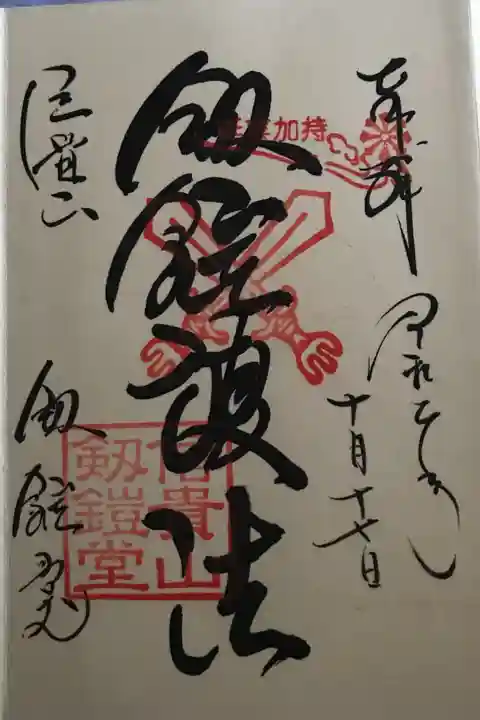 奉拝
令和二年
十月十七日
加持
剱鎧護法
信貴山
剱鎧堂
信貴山
剱鎧堂